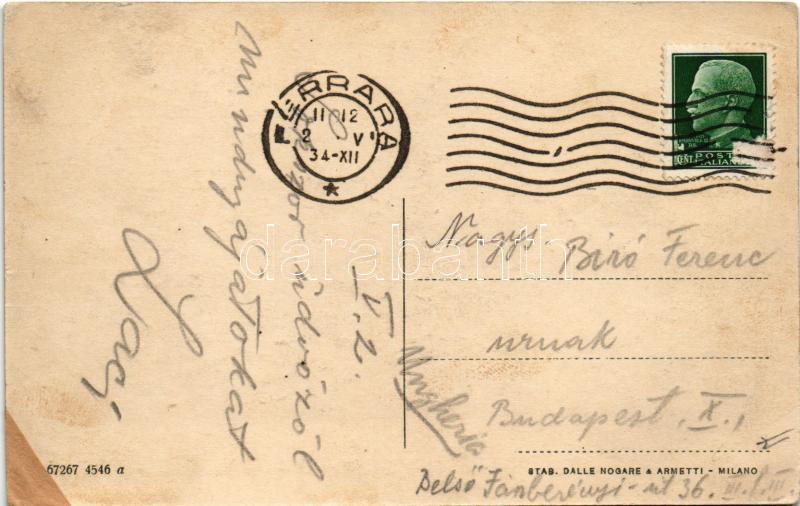 V. 2.
ezerszer üdvözöl
Mindnyájatokat
Laci
FERRARA
11 12
2 V
34-XII
POSTE ITALIANE
Nagys Biró Ferenc
urnak
Budapest, X.,
Ungheria
Belső Jászberényi-út 36. III. I. III.
67267 4546 a
STAB. DALLE NOGARE & ARMETTI - MILANO
darabanth.com